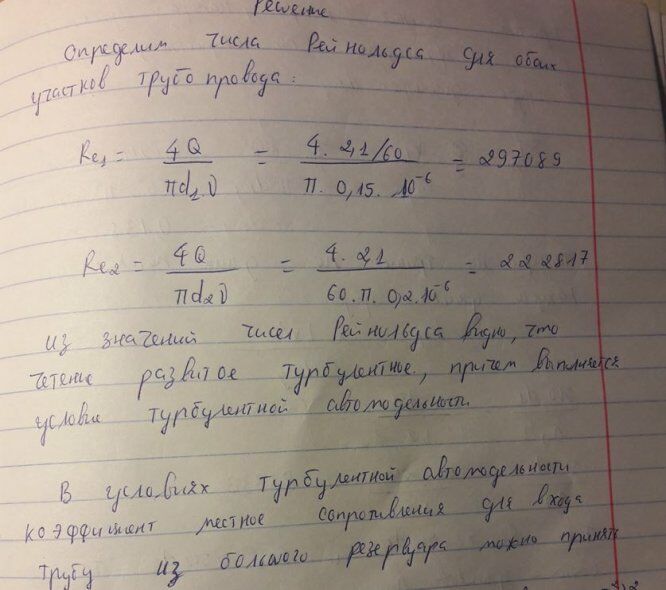 Решение
Определим числа Рейнольдса для обоих
участков трубопровода:
Re₁ = 4Q / πd₁ν = 4 · 2,1/60 / π · 0,15 · 10⁻⁶ = 297089
Re₂ = 4Q / πd₂ν = 4 · 2,1 / 60 · π · 0,2 · 10⁻⁶ = 222817
из значений чисел Рейнольдса видно, что
течение развитое турбулентное, причем выполняется
условие турбулентной автомодельности.
В условиях турбулентной автомодельности
коэффициент местное сопротивления для входа
трубу из большого резервуара можно принять